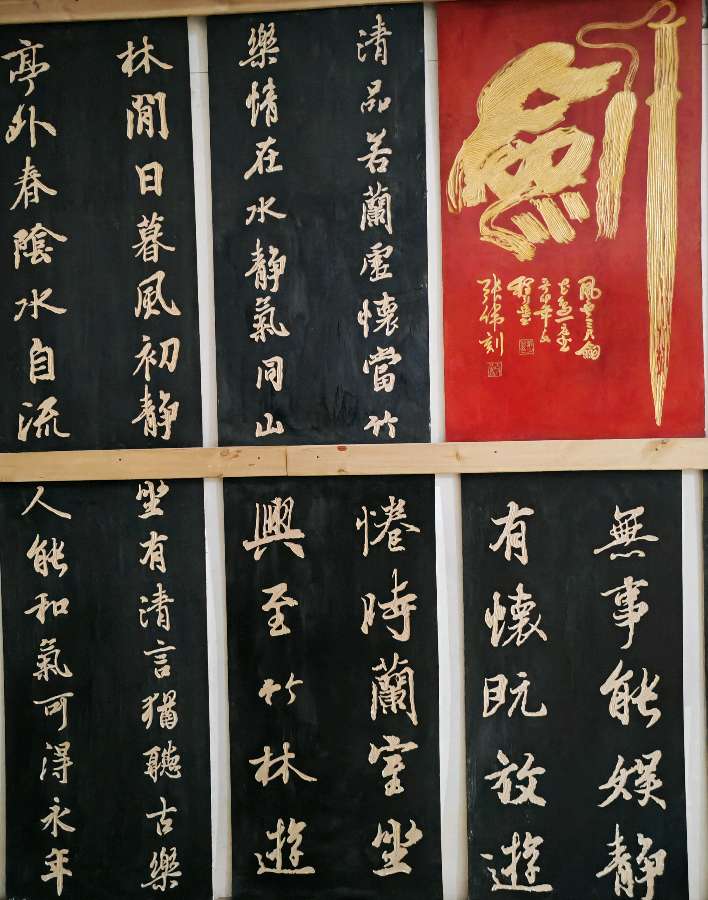 劍
風雲三尺劍
張偉刻
清品若蘭虛懷當竹
樂情在水靜氣同山
林閒日暮風初靜
亭外春陰水自流
無事能娛靜
有懷既放遊
惓時蘭室坐
興至竹林遊
坐有清言猶聽古樂
人能和氣可得永年